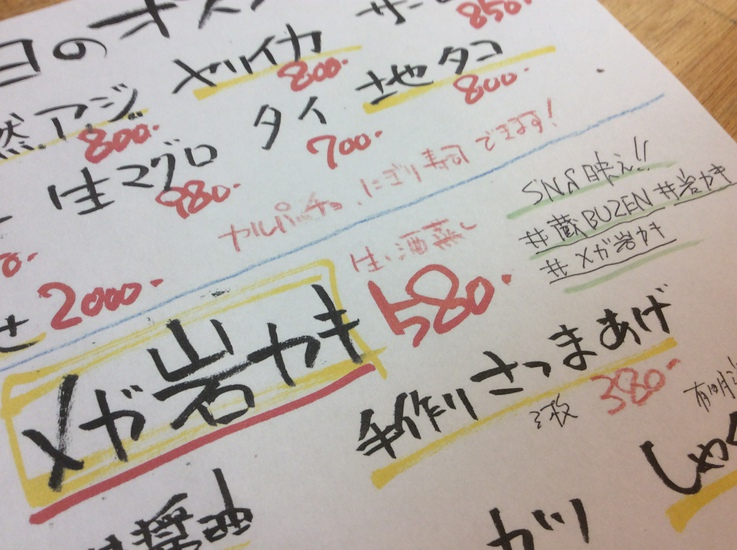 日のオス
ヤリイカ 800.
サー 850.
然アジ 800.
タイ 700.
地タコ 800.
生マグロ 980.
カルパッチョ、にぎり寿司できます!
2000.
SNS映え!!
#蔵BUZEN #岩カキ
#メガ岩カキ
メガ岩カキ
生、酒蒸し
580.
手作りさつまあげ
3枚 380.
有明
しゃく
醤油
カツ